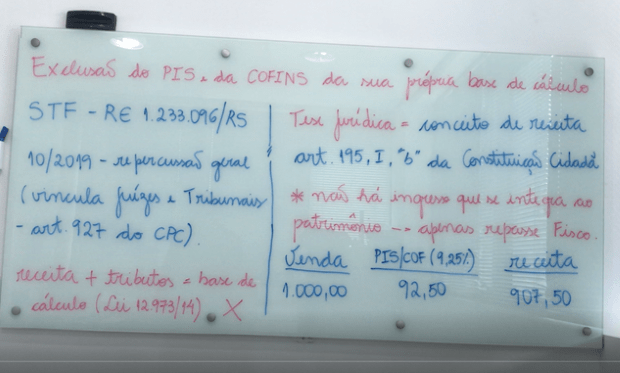 Exclusão do PIS e da COFINS da sua própria base de cálculo
STF - RE 1.233.096/RS
10/2019 - repercussão geral
(vincula juízes e Tribunais
- art. 927 do CPC).
receita + tributos = base de
cálculo (Lei 12.973/14) X
Tese jurídica = conceito de receita
art. 195, I, "b" da Constituição Cidadã
* não há ingresso que se integra ao
patrimônio --> apenas repasse Fisco.
Venda PIS/COF (9,25%) receita
1.000,00 92,50 907,50